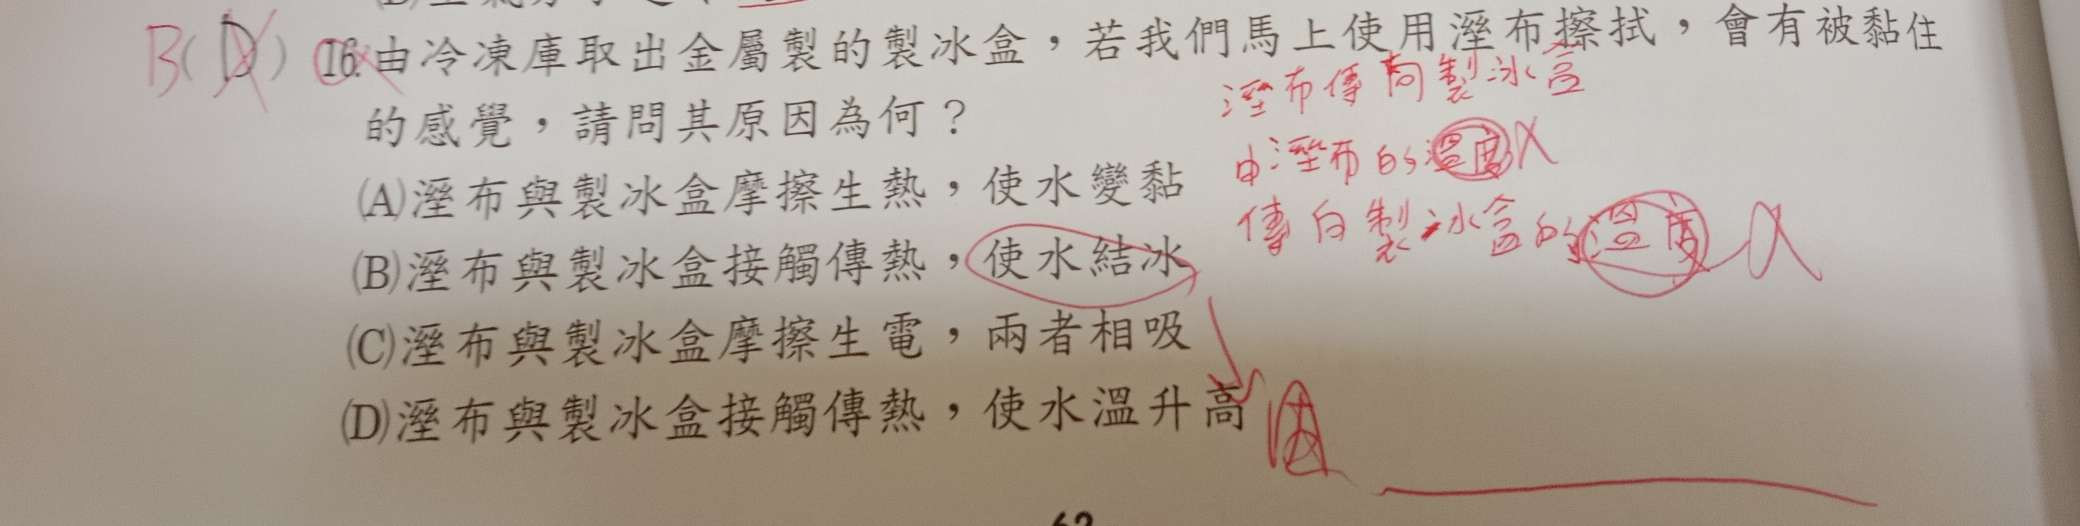 B(D) 16.由冷凍庫取出金屬製的製冰盒，若我們馬上使用溼布擦拭，會有被黏住
的感覺，請問其原因為何？
溼布傳向製冰盒
由溼布的溫度X
傳向製冰盒的溫度
(A)溼布與製冰盒摩擦生熱，使水變黏
(B)溼布與製冰盒接觸傳熱，使水結冰
(C)溼布與製冰盒摩擦生電，兩者相吸
(D)溼布與製冰盒接觸傳熱，使水溫升高